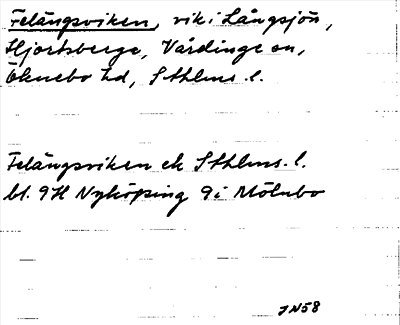 Felängsviken, vik i Långsjön,
Hjortsberga, Vårdinge sn,
Öknebo hd, Sthlms l.
Felängsviken ek Sthlms. l.
bl. 9H Nyköping 9i Mölnbo
JN58